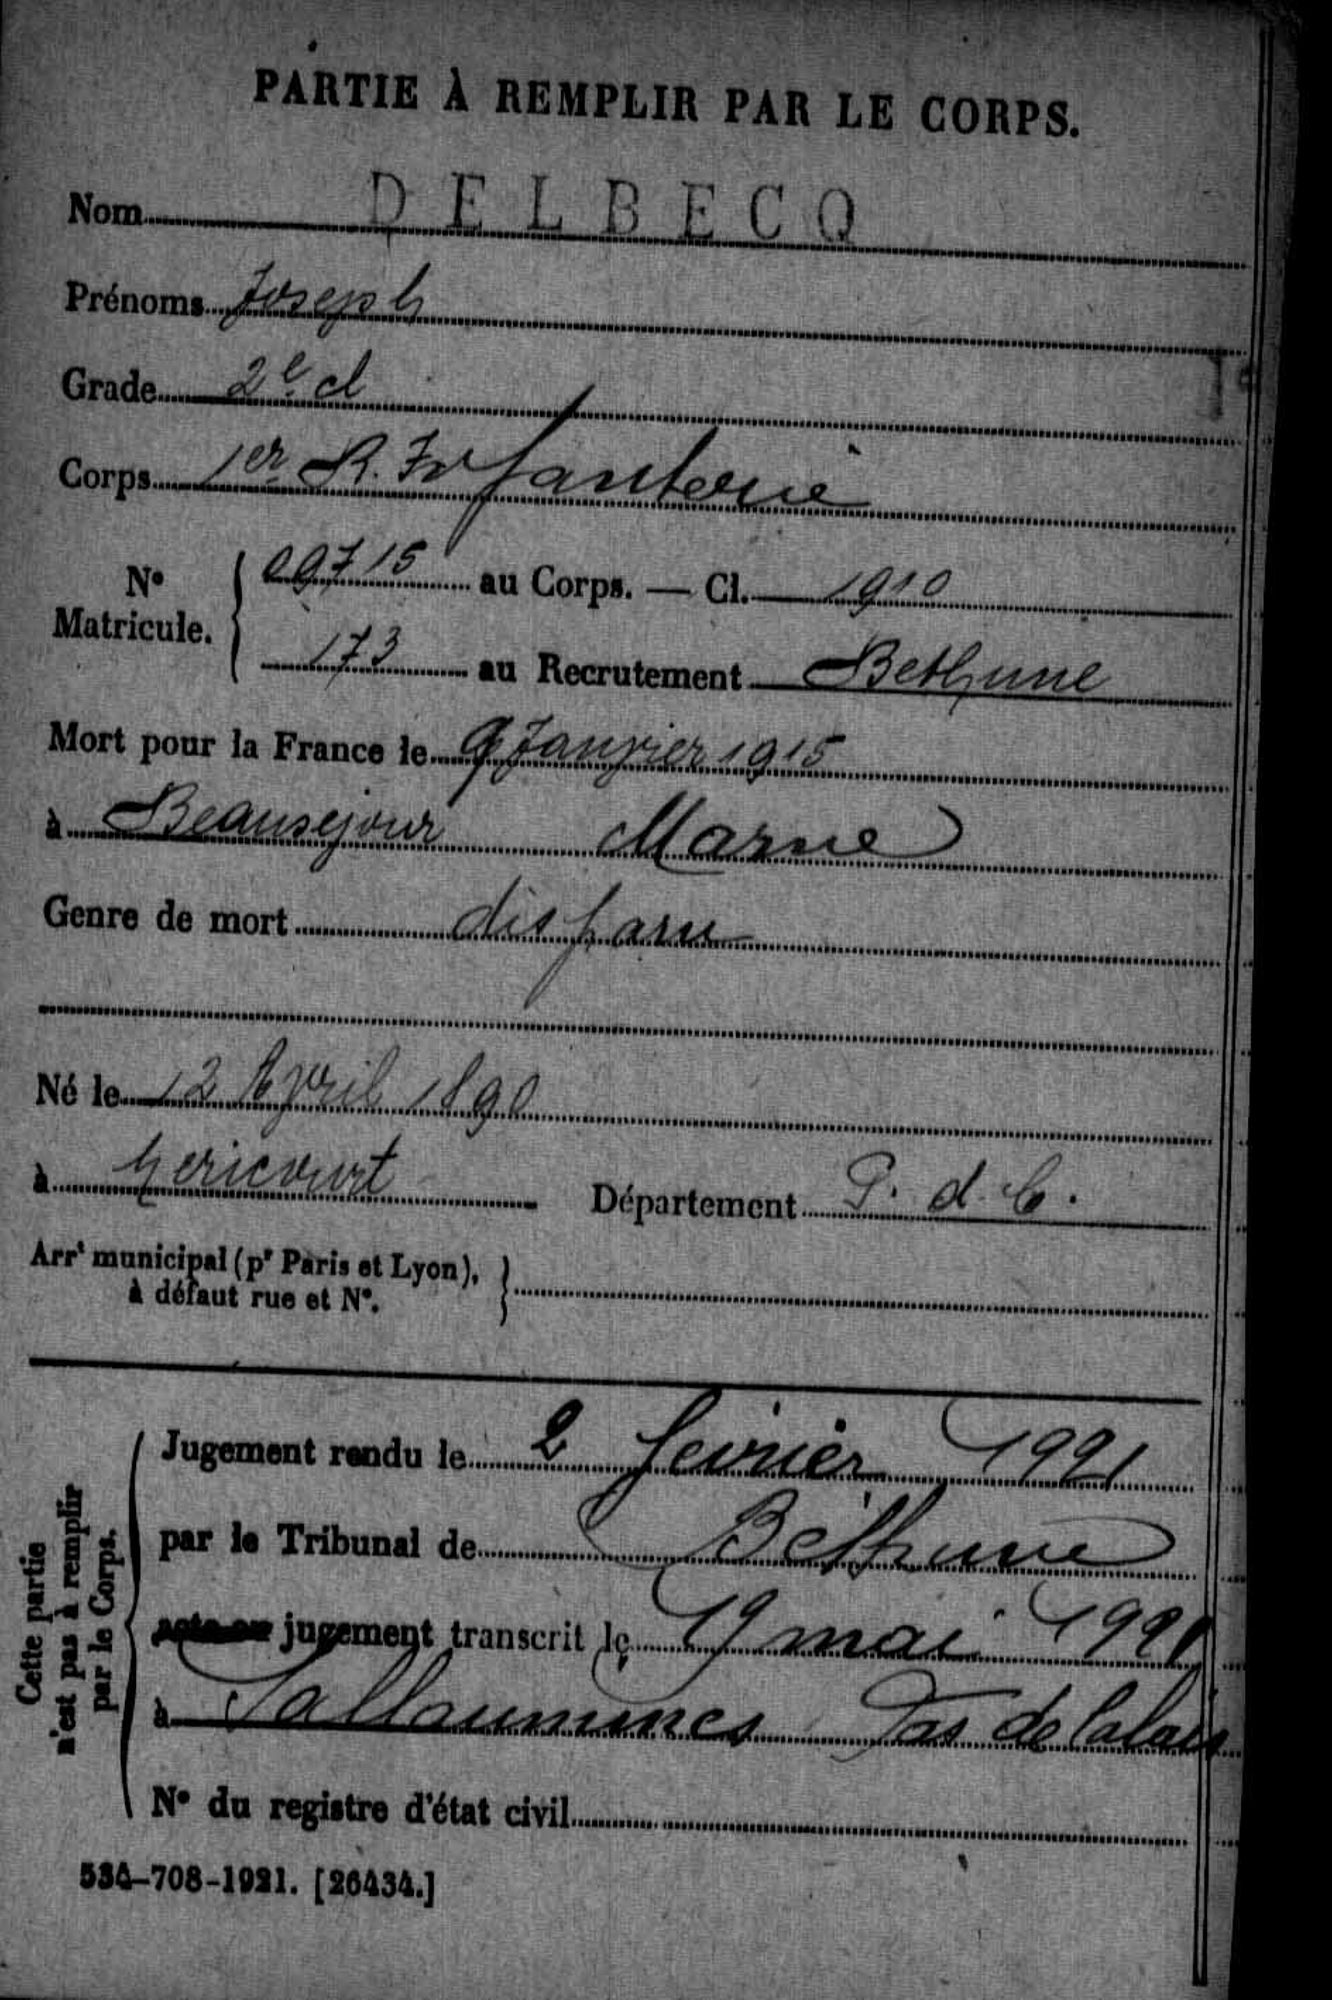 PARTIE À REMPLIR PAR LE CORPS.
Nom DELBECQ
Prénoms Joseph
Grade 2e cl
Corps 1er R. Infanterie
N° Matricule. { 09715 au Corps. — Cl. 1910
173 au Recrutement Bethune
Mort pour la France le 9 Janvier 1915
à Beausejour Marne
Genre de mort disparu
Né le 12 Avril 1890
à hericourt Département P. d. C.
Arrt municipal (pr Paris et Lyon), }
à défaut rue et N°.
Cette partie
n'est pas à remplir
par le Corps.
Jugement rendu le 2 février 1921
par le Tribunal de Béthune
acte ou jugement transcrit le 19 mai 1921
à Sallaumines Pas de Calais
N° du registre d'état civil
534-708-1921. [26434.]